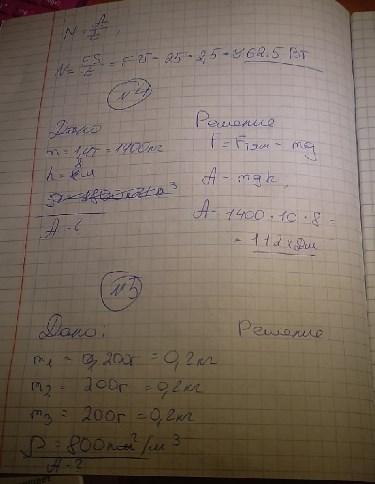 N = A/t,
N = FS/t = F·v = 25 · 2,5 = 62.5 Вт
№4
Дано
m = 1,4т = 1400кг
h = 8м
A - ?
Решение
F = Fтяж = mg
A = mgh,
A = 1400 · 10 · 8 =
= 112кДж
№5
Дано:
m1 = 200г = 0,2кг
m2 = 200г = 0,2кг
m3 = 200г = 0,2кг
ρ = 800 кг/м³
A - ?
Решение